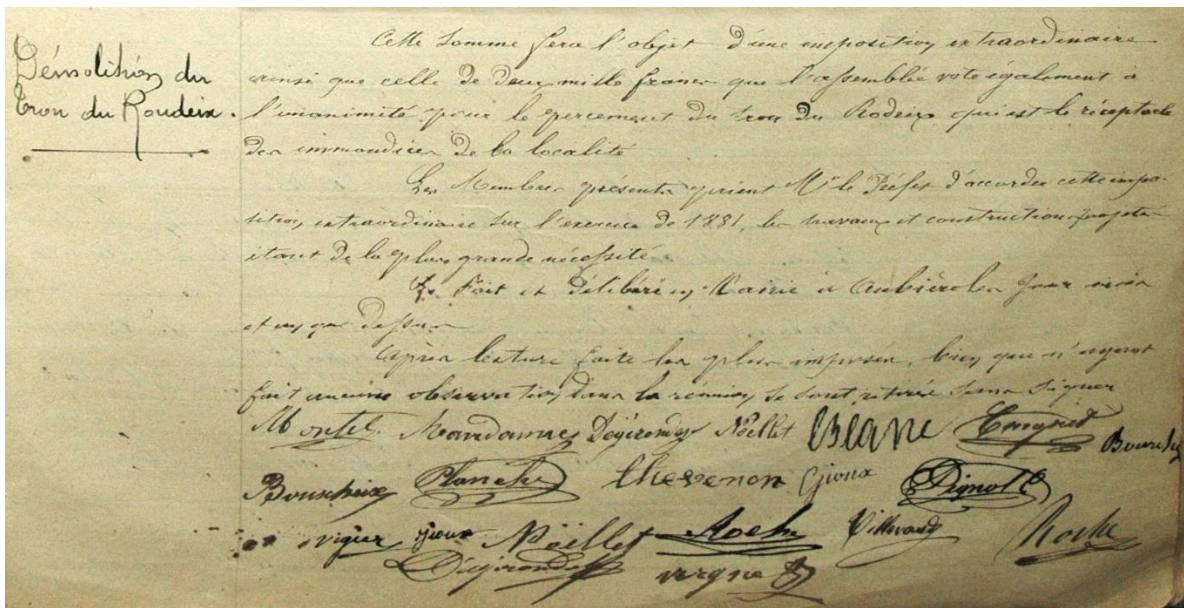 Démolition du
Trou du Roudeix.
Cette somme fera l'objet d'une imposition extraordinaire
ainsi que celle de deux mille francs que l'assemblée vote également à
l'unanimité, pour le percement du trou du Rodeix qui est le réceptacle
des immondices de la localité
Les Membres présents prient Mr le Préfet d'accorder cette impo-
sition extraordinaire sur l'exercice de 1881, les travaux et construction projetés
étant de la plus grande nécessité
Fait et délibéré en Mairie à Aubière les jour mois
et an que dessus
Après lecture faite les plus imposés, bien que n'ayant
fait aucune observation dans la réunion se sont retirés sans signer
Montel Dégironde Noëllet Blanc
Bouscheix Planche Thevenon Gioux
Vigier Gioux Noëllet Roche Roche
Dégironde Vergne